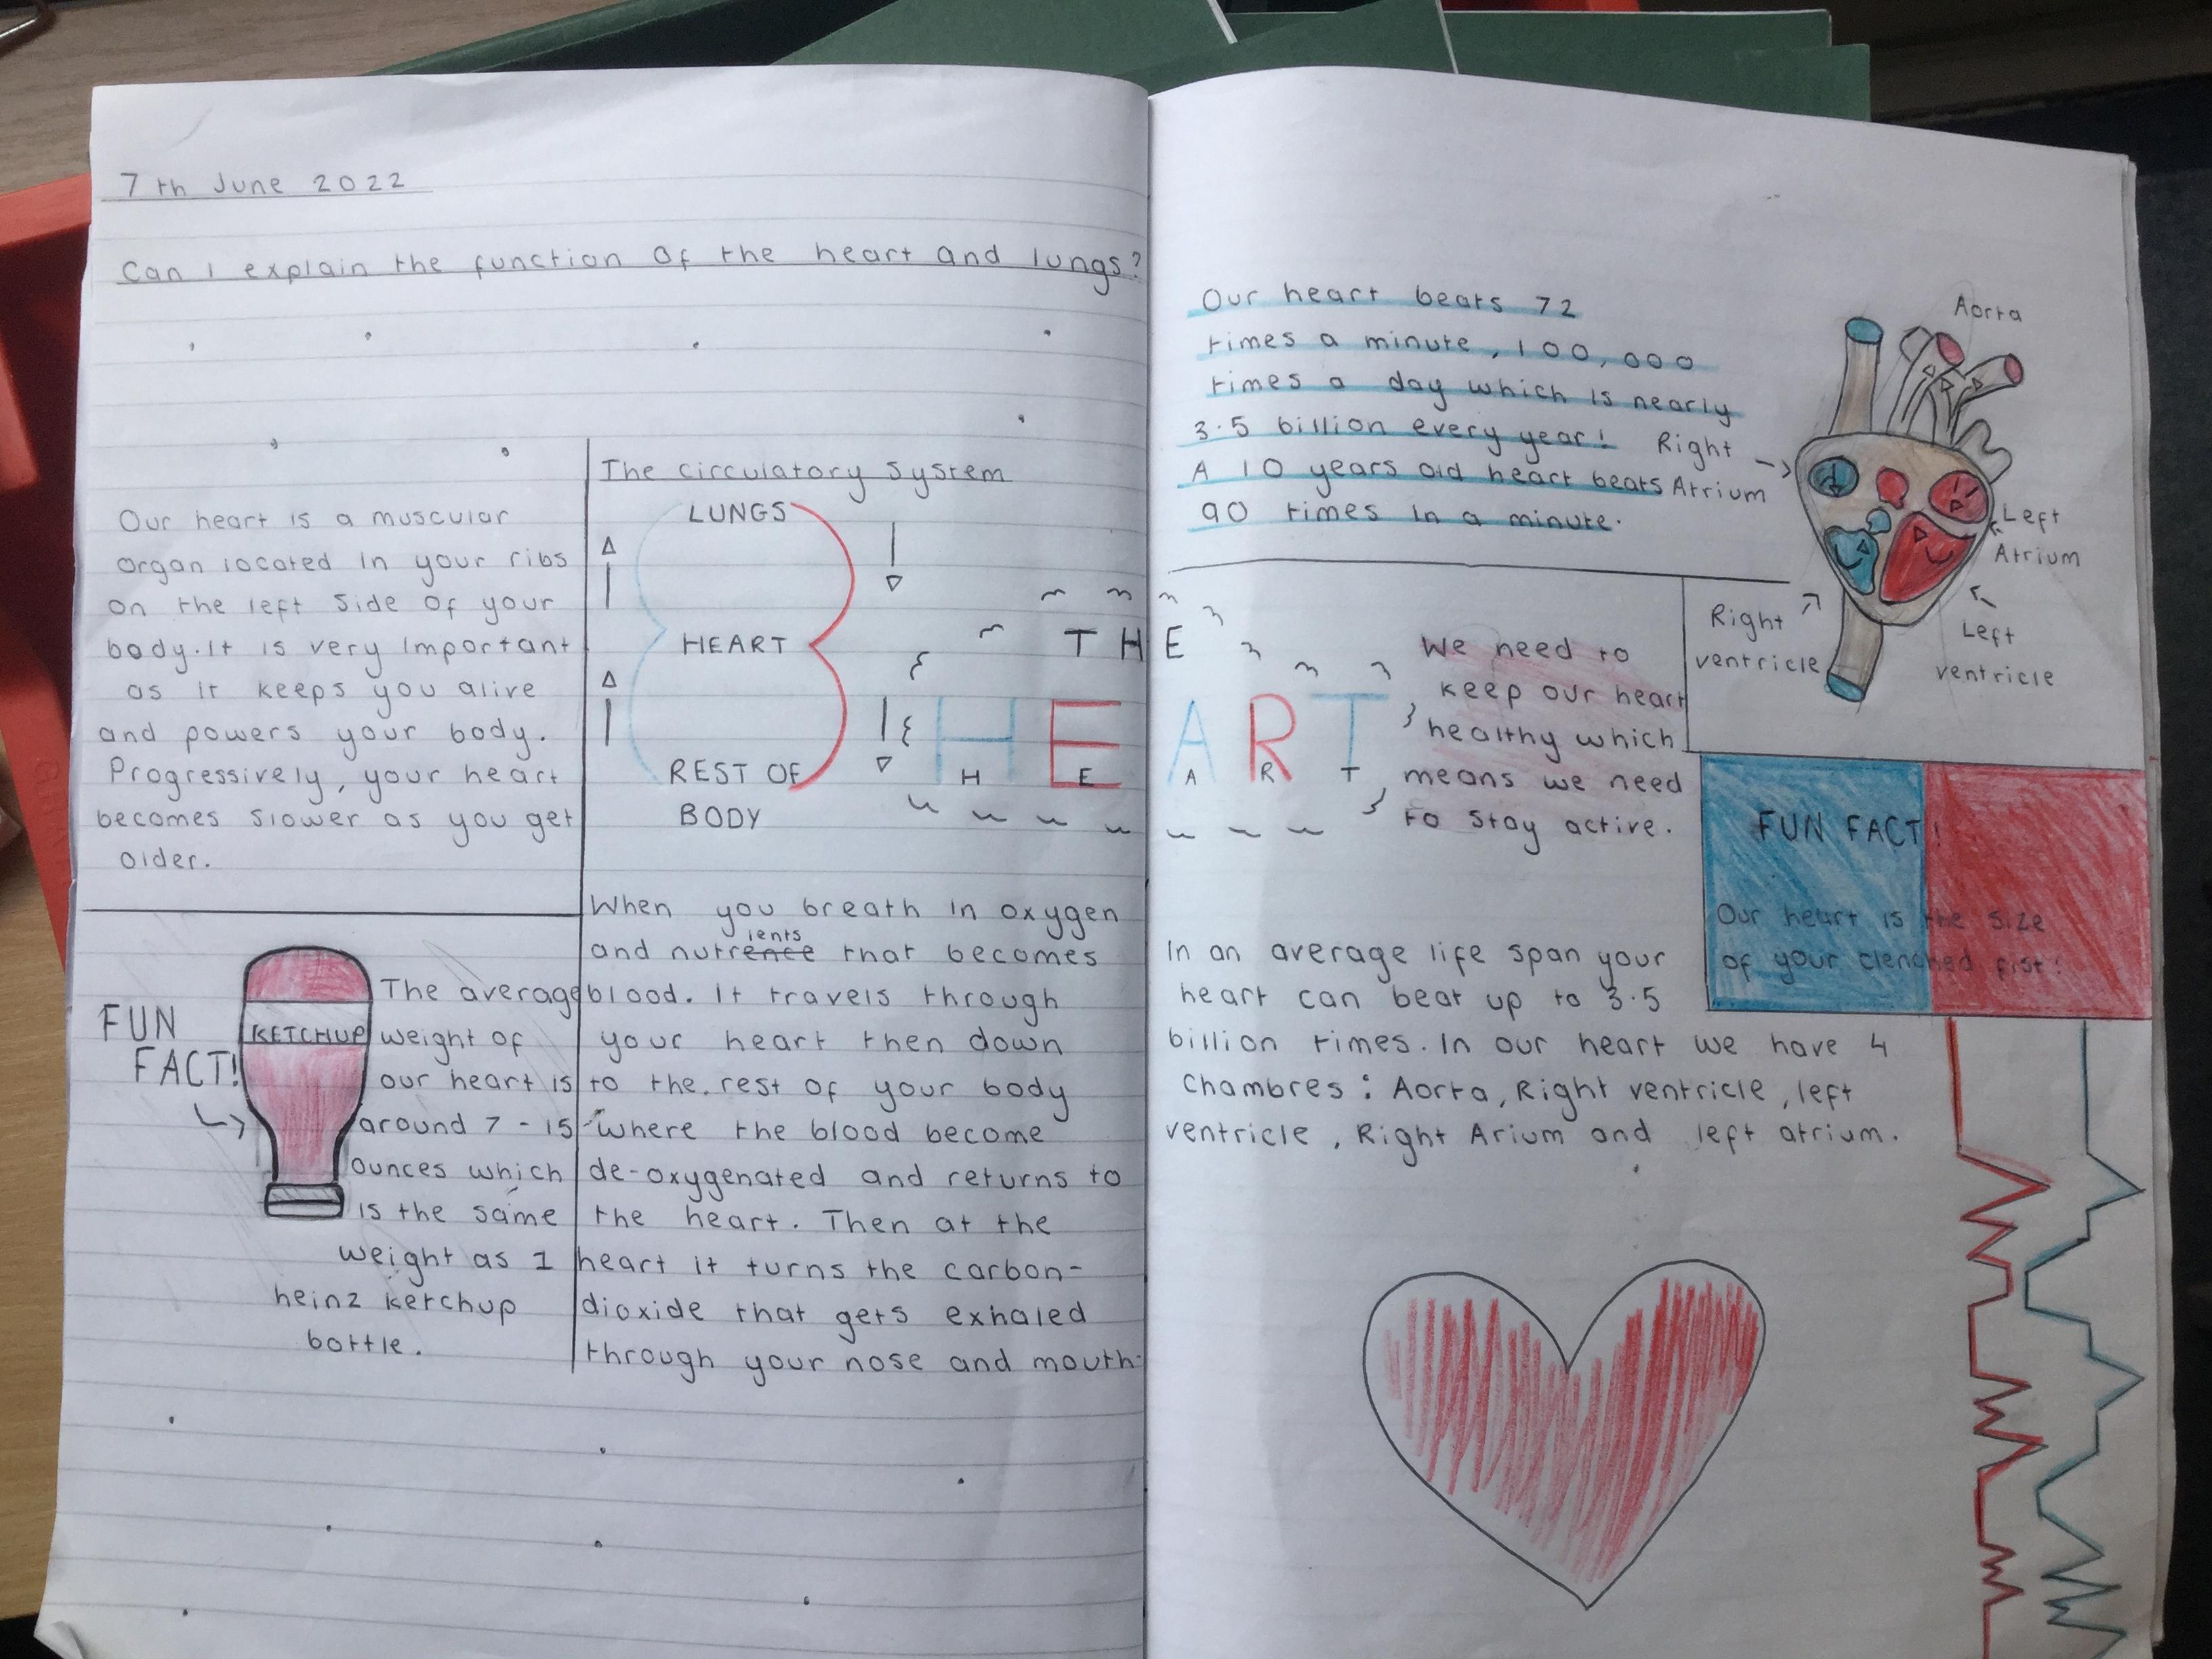 7th June 2022
Can I explain the function of the heart and lungs?
Our heart is a muscular
organ located in your ribs
on the left side of your
body. It is very important
as it keeps you alive
and powers your body.
Progressively, your heart
becomes slower as you get
older.
FUN
FACT!
KETCHUP
The average
weight of
our heart is
around 7 - 15
ounces which
is the same
weight as 1
heinz ketchup
bottle.
The circulatory system
LUNGS
HEART
REST OF
BODY
THE
HEART
H E A R T
When you breath in oxygen
ients
and nutrence that becomes
blood. It travels through
your heart then down
to the rest of your body
where the blood become
de-oxygenated and returns to
the heart. Then at the
heart it turns the carbon-
dioxide that gets exhaled
through your nose and mouth.
Our heart beats 72
times a minute, 100,000
times a day which is nearly
3.5 billion every year!
A 10 years old heart beats
90 times in a minute.
Aorta
Right
Atrium
Left
Atrium
Right
ventricle
Left
ventricle
We need to
keep our heart
healthy which
means we need
to stay active.
FUN FACT!
Our heart is the size
of your clenched fist!
In an average life span your
heart can beat up to 3.5
billion times. In our heart we have 4
Chambres: Aorta, Right ventricle, left
ventricle, Right Arium and left atrium.